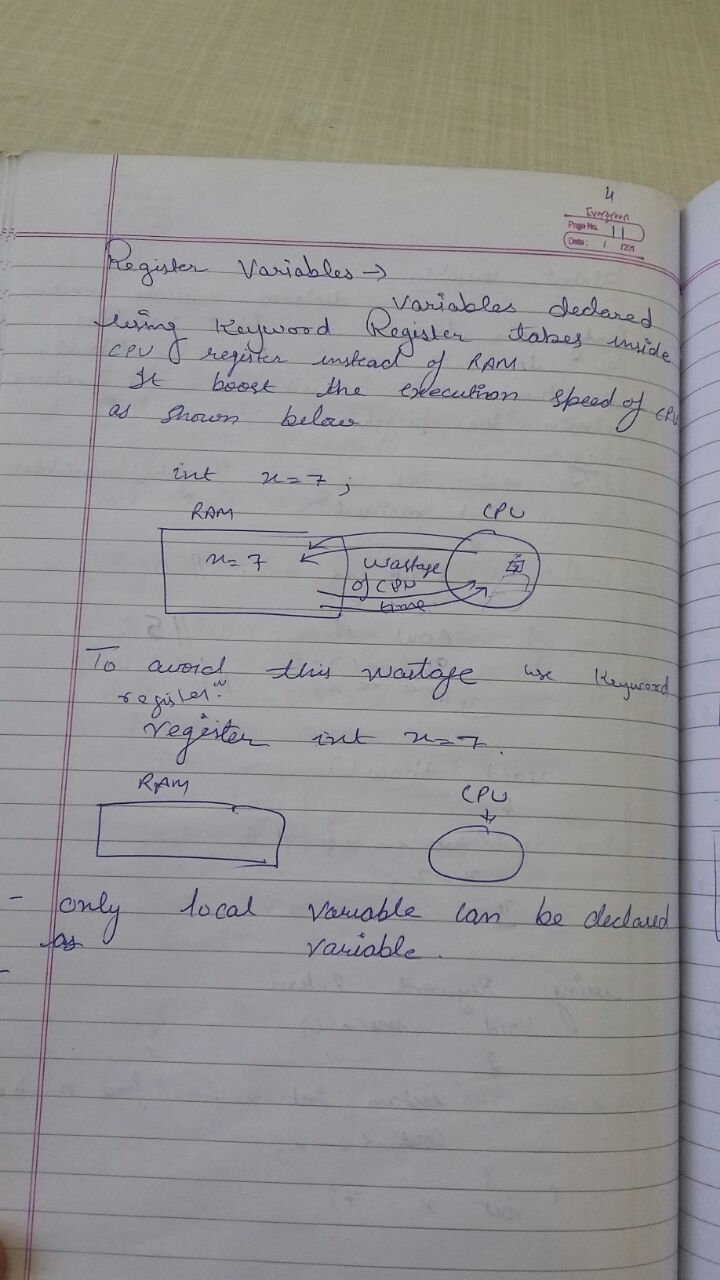 4
Evergreen
Page No. 11
Date: / /201
Register Variables →
Variables declared
using Keyword Register takes inside
CPU register instead of RAM
It boost the execution speed of CPU
as shown below
int x=7;
RAM CPU
x=7
wastage
of CPU
time
To avoid this wastage use Keyword
register"
register int x=7.
RAM CPU
- only local variable can be declared
as variable.
-